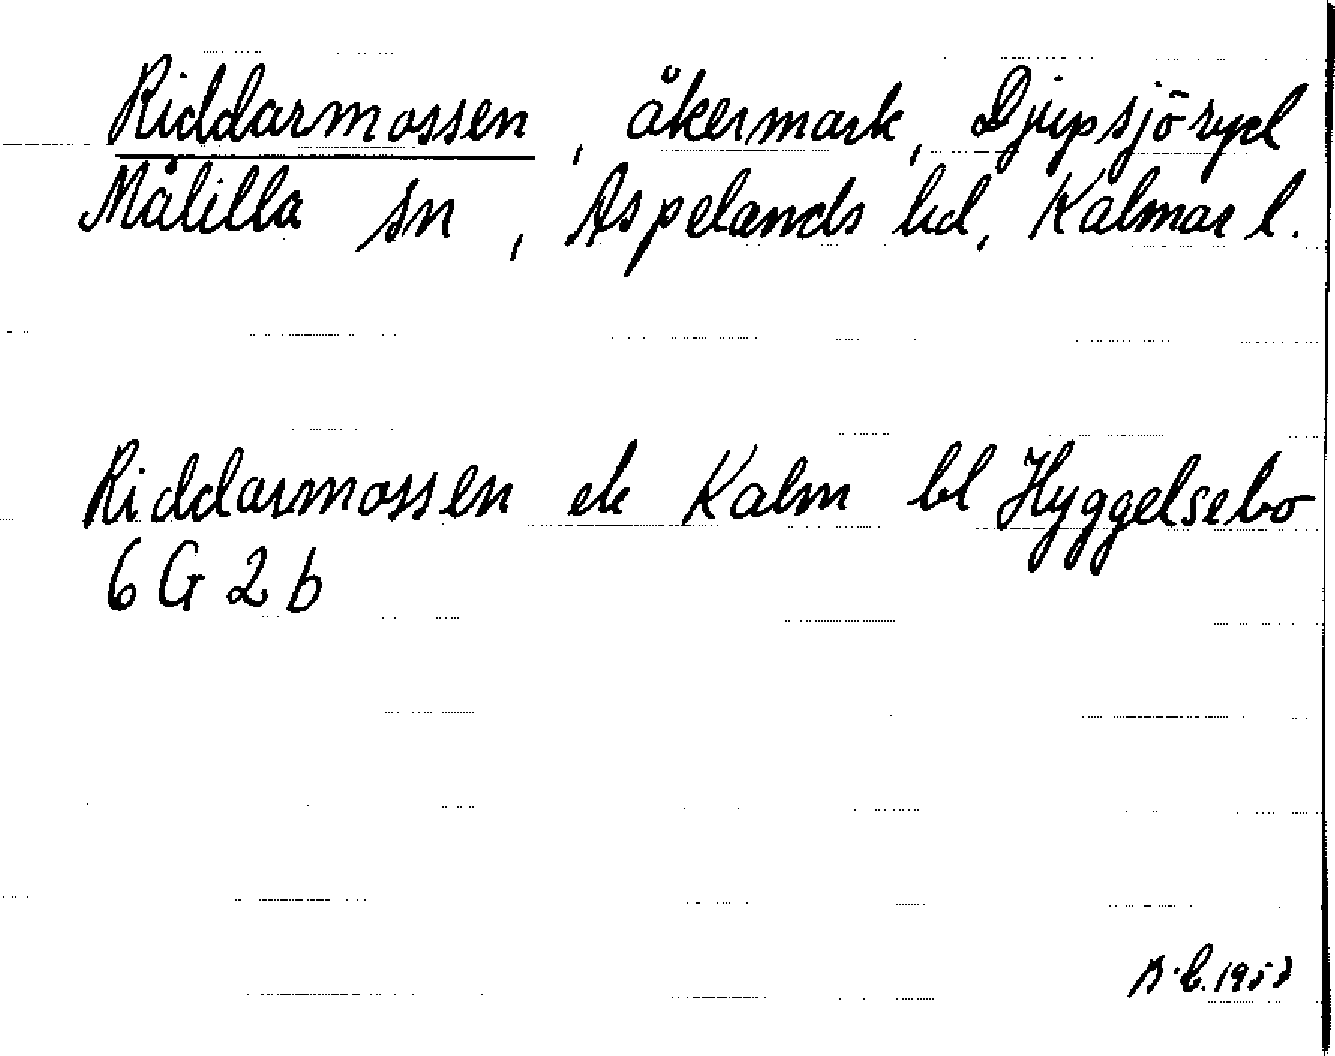 Riddarmossen, åkermark, Djupsjöryd
Målilla sn, Aspelands hd, Kalmar l.
Riddarmossen ek Kalm bl Hyggelsebo
6 G 2 b